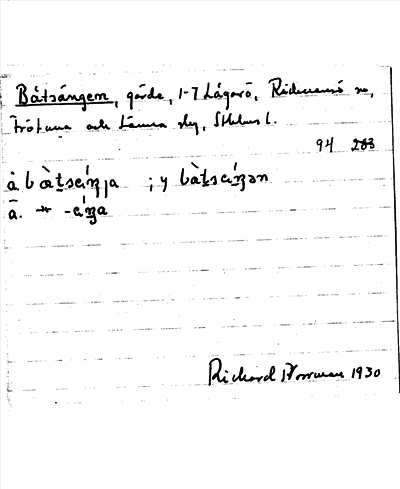 Båtsängen, gärde, 1-7 Lågarö, Rådmansö sn,
Frötuna och Länna slg, Sthlms l.
94 283
å bà̀tsæ̀ŋ̩a ; y bàtsæ̀ŋən
Richard Norrman 1930